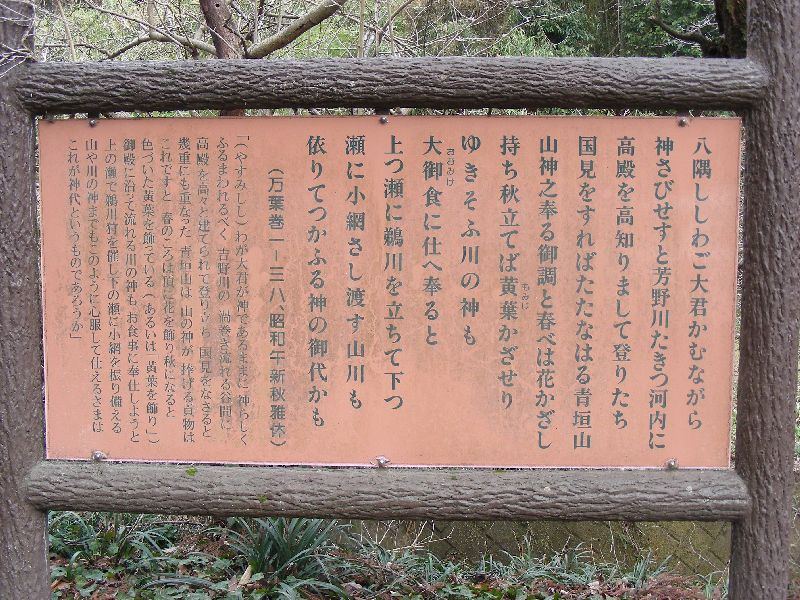 八隅ししわご大君かむながら
神さびせすと芳野川たきつ河内に
高殿を高知りまして登りたち
国見をすればたたなはる青垣山
山神之奉る御調と春べは花かざし
持ち秋立てば黄葉かざせり
もみじ
ゆきそふ川の神も
大御食に仕へ奉ると
おおみけ
上つ瀬に鵜川を立ちて下つ
瀬に小網さし渡す山川も
依りてつかふる神の御代かも
(万葉巻一ー三八、昭和午新秋雅休)
「(やすみしし)わが大君が神であるままに神らしく
ふるまわれるべく、吉野川の渦巻き流れる谷間に、
高殿を高々と建てられて登り立ち、国見をなさると
幾重にも重なった青垣山は、山の神が捧げる貢物は
これですと、春のころは頂に花を飾り秋になると
色づいた黄葉を飾っている(あるいは「黄葉を飾り」)
御殿に沿って流れる川の神も、お食事に奉仕しようと
上の瀬で鵜川狩を催し下の瀬に小網を振り備える
山や川の神までもこのように心服して仕えるさまは
これが神代というものであろうか」